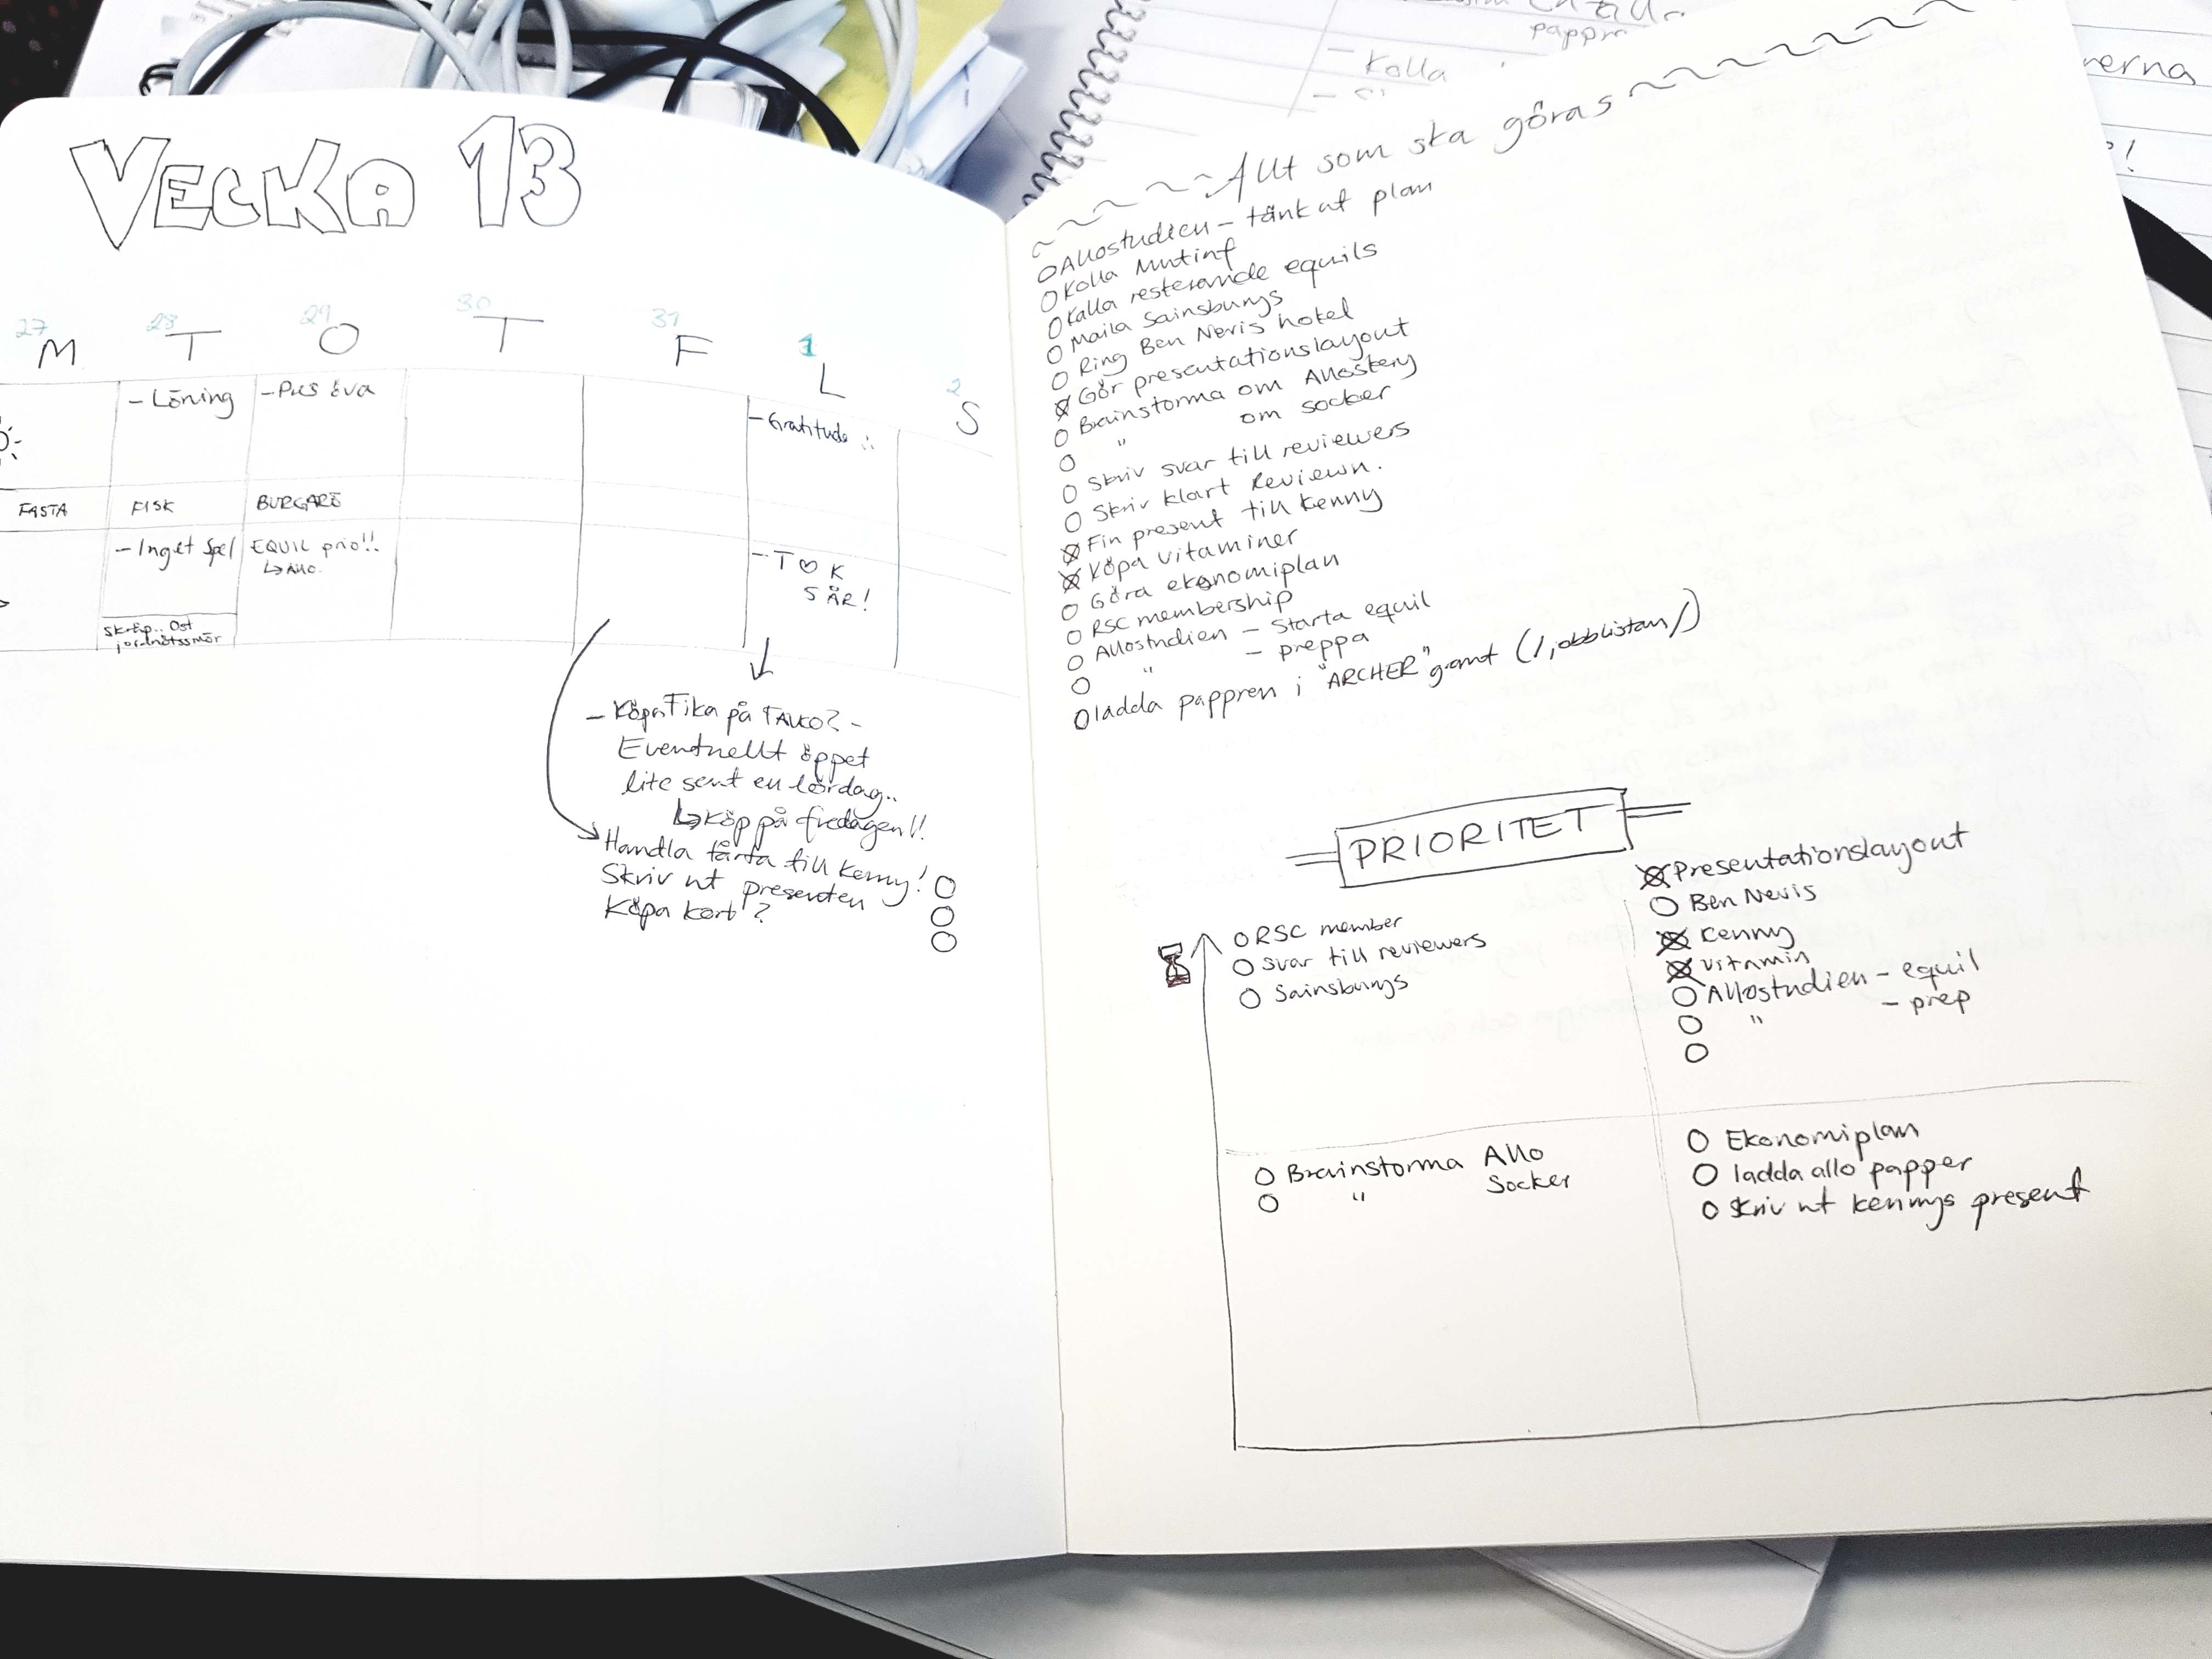 VECKA 13
27 28 29 30 31 1 2
M T O T F L S
- Löning
- Pus öva
- Gratitude
FASTA
FISK
BURGARE
- Inget spel
EQUIL prio!!
↳ Allo.
- T ♡ K
5 ÅR!
Skräp.. Ost
jordnötssmör
- Köpa Fika på TAUKO? -
Eventuellt öppet
lite sent en lördag..
↳ Köp på fredagen!!
Handla tårta till Kenny!
Skriv ut presenten
Köpa kort?
Allt som ska göras
Allostudien - tänk ut plan
Kolla Mutinf
Kolla resterande equils
Maila Sainsburys
Ring Ben Nevis hotel
Gör presentationslayout
Brainstorma om Allostery
" om socker
Skriv svar till reviewers
Skriv klart Reviewn.
Fin present till Kenny
Köpa vitaminer
Göra ekonomiplan
RSC membership
Allostudien - Starta equil
" - preppa
ladda pappren i "ARCHER" gramt (/jobblistan/)
PRIORITET
RSC member
svar till reviewers
Sainsburys
Presentationslayout
Ben Nevis
Kenny
Vitamin
Allostudien - equil
" - prep
Brainstorma Allo
" Socker
Ekonomiplan
ladda allo papper
Skriv ut Kennys present
pappr
- Kolla
rerna